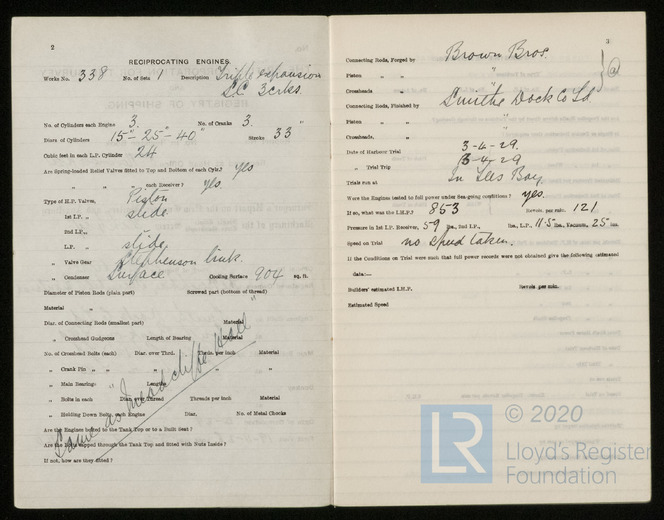 2
RECIPROCATING ENGINES.
Works No. 338 No. of Sets 1 Description Triple expansion
S.C. 3 crks.
No. of Cylinders each Engine 3 No. of Cranks 3
Diars. of Cylinders 15"- 25 - 40" Stroke 33"
Cubic feet in each L.P. Cylinder 24
Are Spring-loaded Relief Valves fitted to Top and Bottom of each Cylr.? yes
" " each Receiver? yes.
Type of H.P. Valves, Piston
" 1st I.P. " slide
" 2nd I.P. "
" L.P. " slide
" Valve Gear Stephenson link.
" Condenser Surface Cooling Surface 904 sq. ft.
Diameter of Piston Rods (plain part) Screwed part (bottom of thread)
Material "
Diar. of Connecting Rods (smallest part) Material
" Crosshead Gudgeons Length of Bearing Material
No. of Crosshead Bolts (each) Diar. over Thrd. Thrds. per inch Material
" Crank Pin " " " " "
" Main Bearings Lengths
" Bolts in each Diar. over Thread Threads per inch Material
" Holding Down Bolts, each Engine Diar. No. of Metal Chocks
Are the Engines bolted to the Tank Top or to a Built Seat?
Are the Bolts tapped through the Tank Top and fitted with Nuts Inside?
If not, how are they fitted?
Same as
3
Connecting Rods, Forged by Brown Bros.
Piston " " "
Crossheads " "
Connecting Rods, Finished by Smiths Dock Co Ld
Piston " "
Crossheads, "
Date of Harbour Trial 3-4-29.
" Trial Trip 13-4-29
Trials run at In Tees Bay.
Were the Engines tested to full power under Sea-going conditions? yes.
If so, what was the I.H.P.? 853 Revols. per min. 121
Pressure in 1st I.P. Receiver, 59 lbs., 2nd I.P., lbs., L.P., 11.5 lbs., Vacuum, 25 ins.
Speed on Trial no speed taken.
If the Conditions on Trial were such that full power records were not obtained give the following estimated
data:—
Builders' estimated I.H.P. Revols. per min.
Estimated Speed
LR © 2020
Lloyd's Register
Foundation